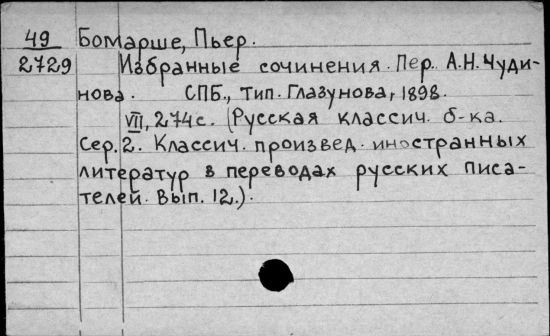 49 Бомарше, Пьер.
2729 Избранные сочинения. Пер. А.Н. Чуди-
нова. СПБ., тип. Глазунова, 1898.
VII, 274 с. (Русская классич. б-ка.
Сер. 2. Классич. произвед. иностранных
литератур в переводах русских писа-
телей. Вып. 12.).